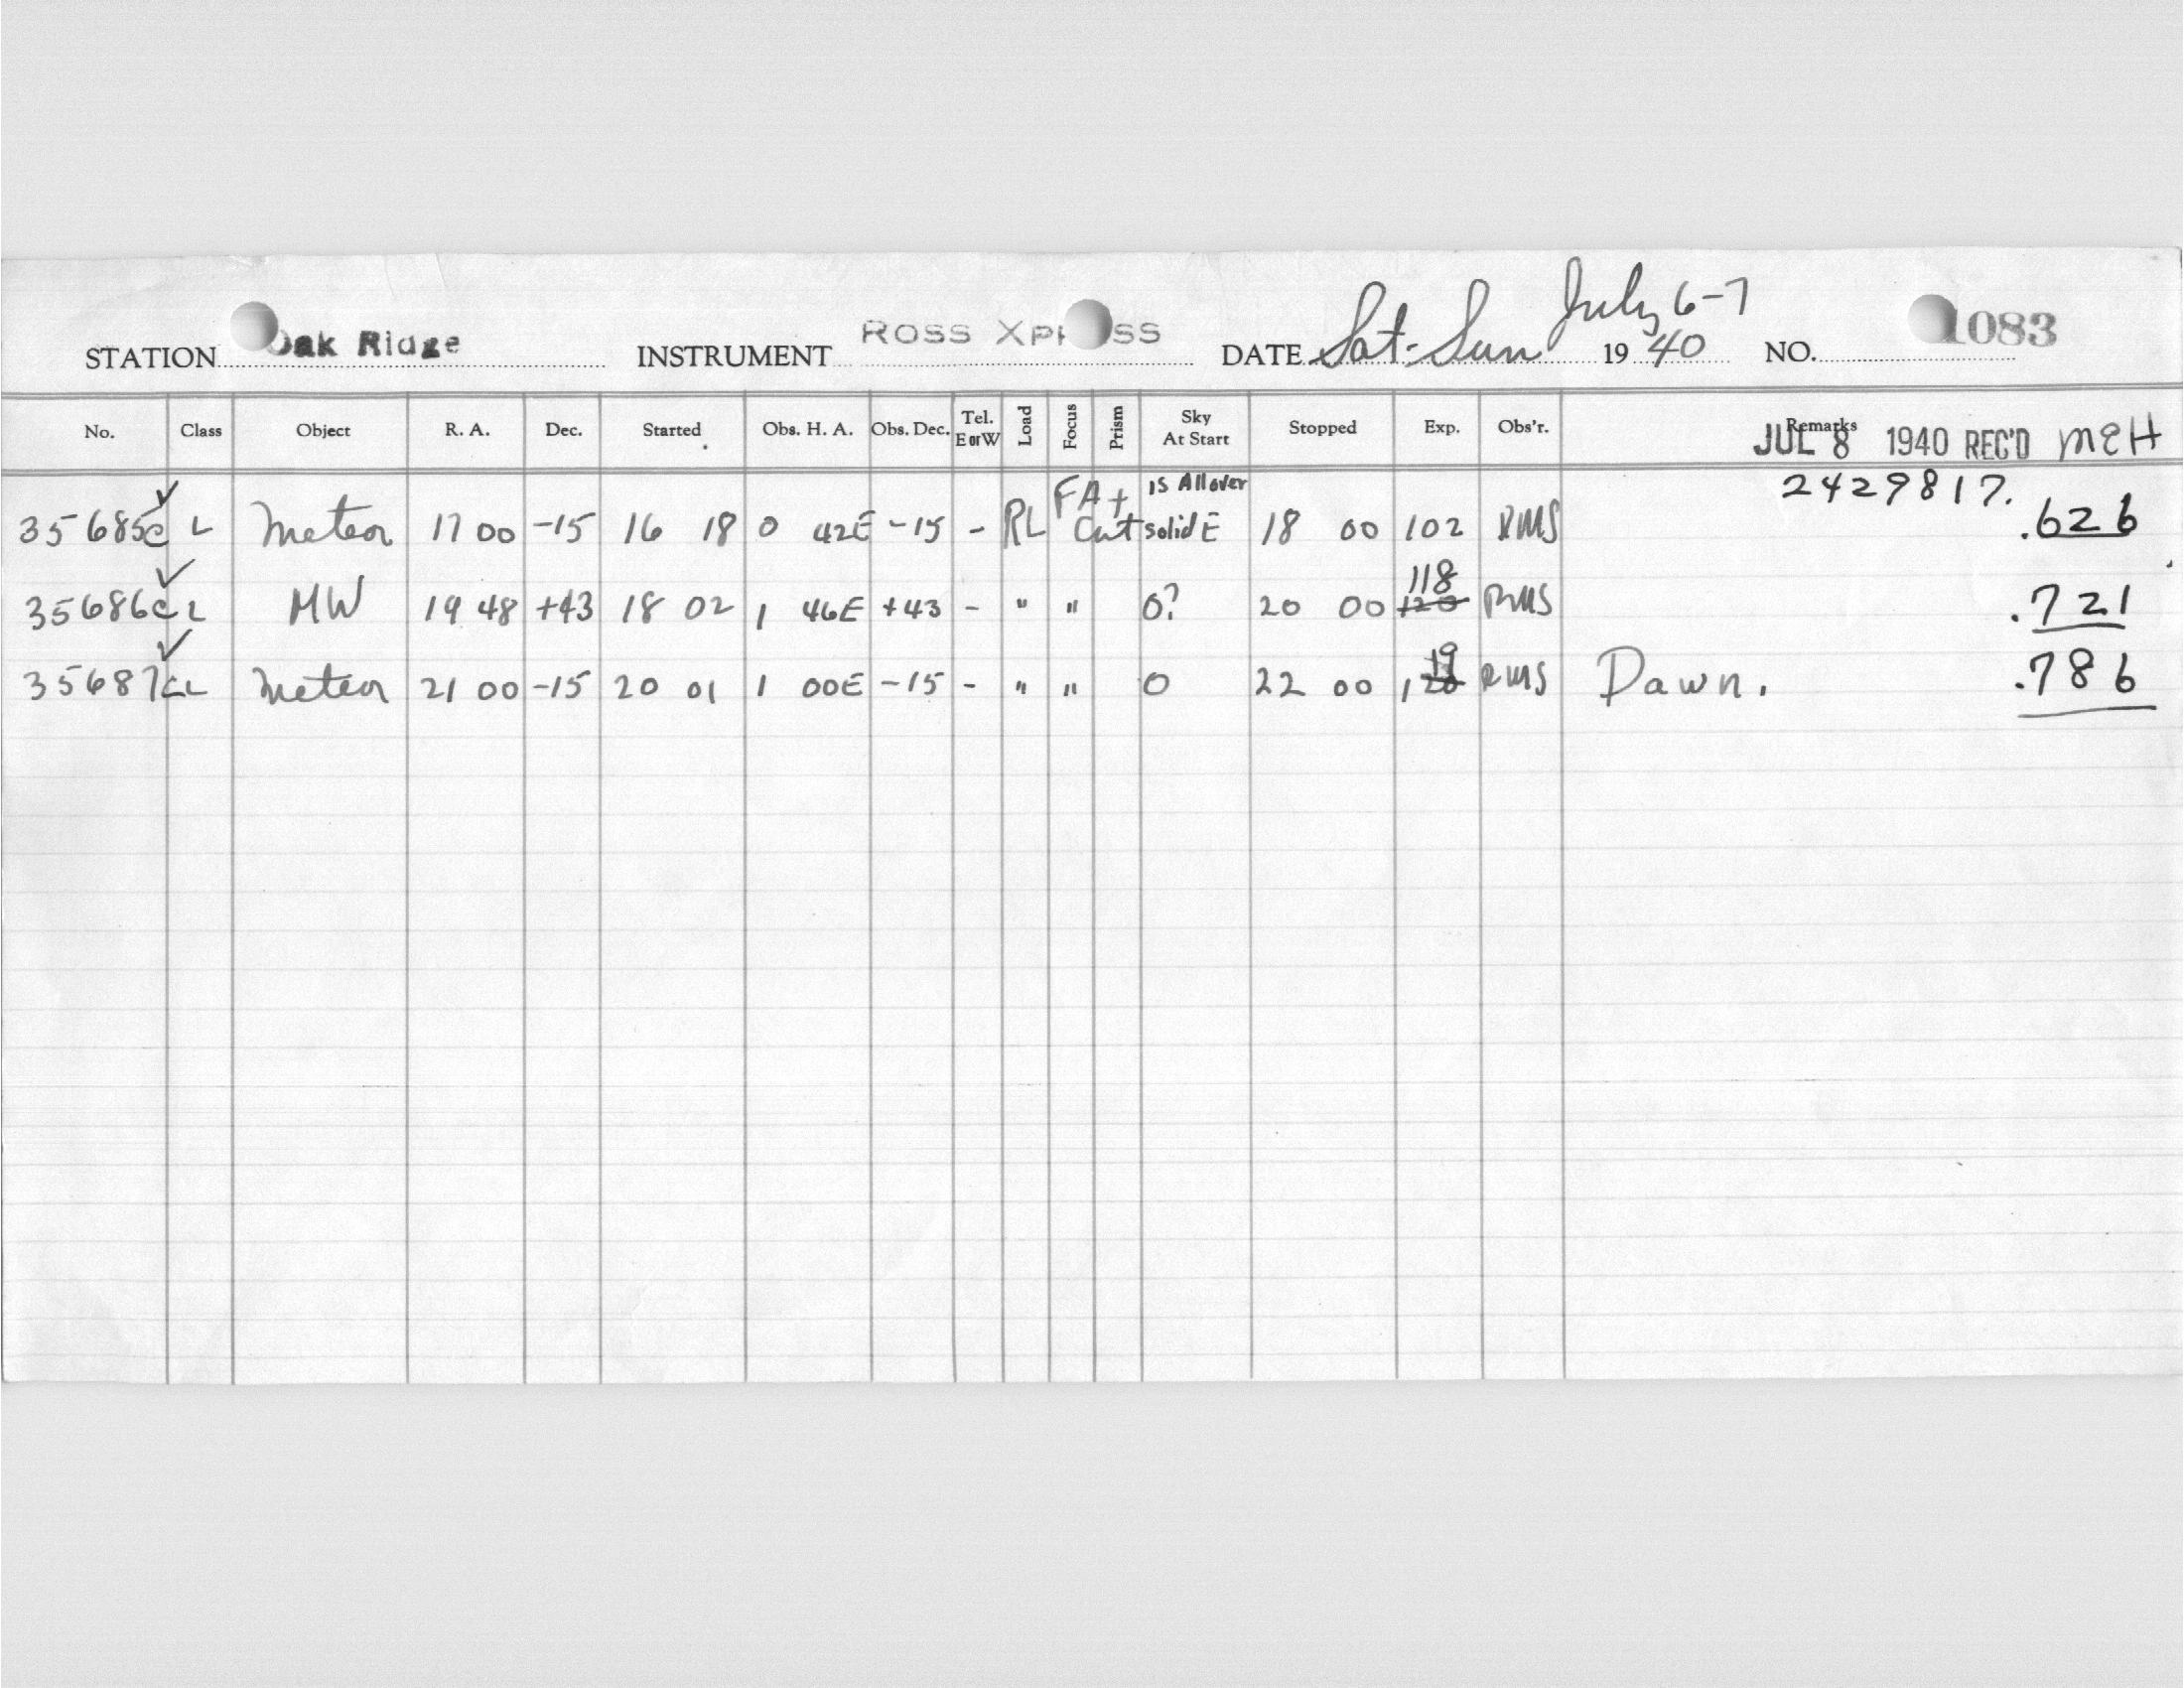 STATION Oak Ridge INSTRUMENT ROSS XPRESS DATE Sat-Sun July 6-7 19 40 NO. 1083
No. Class Object R. A. Dec. Started Obs. H. A. Obs. Dec. Tel. E or W Load Focus Prism Sky At Start Stopped Exp. Obs'r. Remarks
JUL 8 1940 REC'D MEH
2429817.
35685c L Meteor 17 00 -15 16 18 0 42E -15 - RL FA + Cut IS All over solid E 18 00 102 RMS .626
35686c L MW 19 48 +43 18 02 1 46E +43 - " " 0? 20 00 120 118 RMS .721
35687c L Meteor 21 00 -15 20 01 1 00E -15 - " " 0 22 00 120 19 RMS Dawn. .786